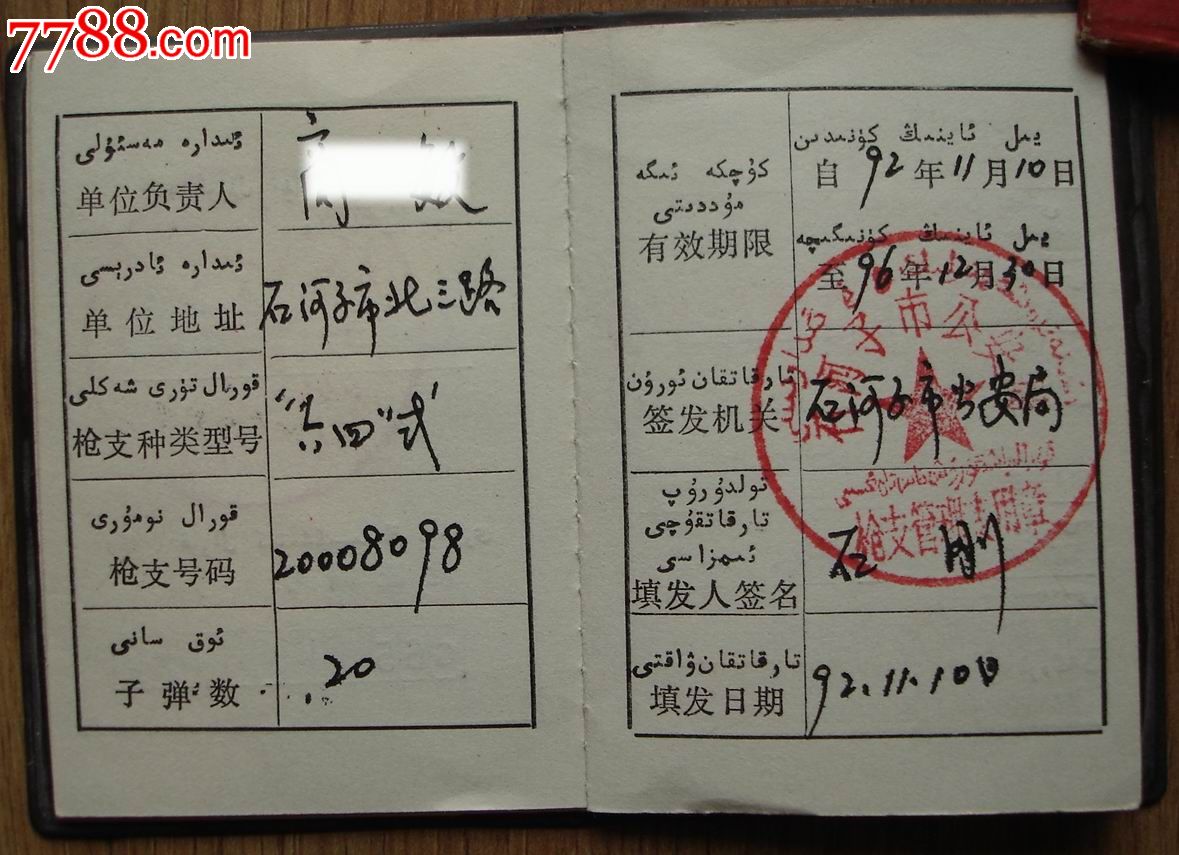 7788.com
ئىدارە مەسئۇلى
单位负责人
ئىدارە ئادرېسى
单位地址
石河子市北三路
قورال تۈرى شەكلى
枪支种类型号
“六四”式
قورال نومۇرى
枪支号码
20008098
ئوق سانى
子弹数
20
كۈچكە ئىگە
مۇددىتى
有效期限
يىل ئاينىڭ كۈنىدىن
自92年11月10日
يىل ئاينىڭ كۈنىگىچە
至96年12月30日
تارقاتقان ئورۇن
签发机关
石河子市公安局
تولدۇرۇپ
تارقاتقۇچى
ئىمزاسى
填发人签名
石刚
تارقاتقان ۋاقتى
填发日期
92.11.10日
石河子市公安局
枪支管理专用章